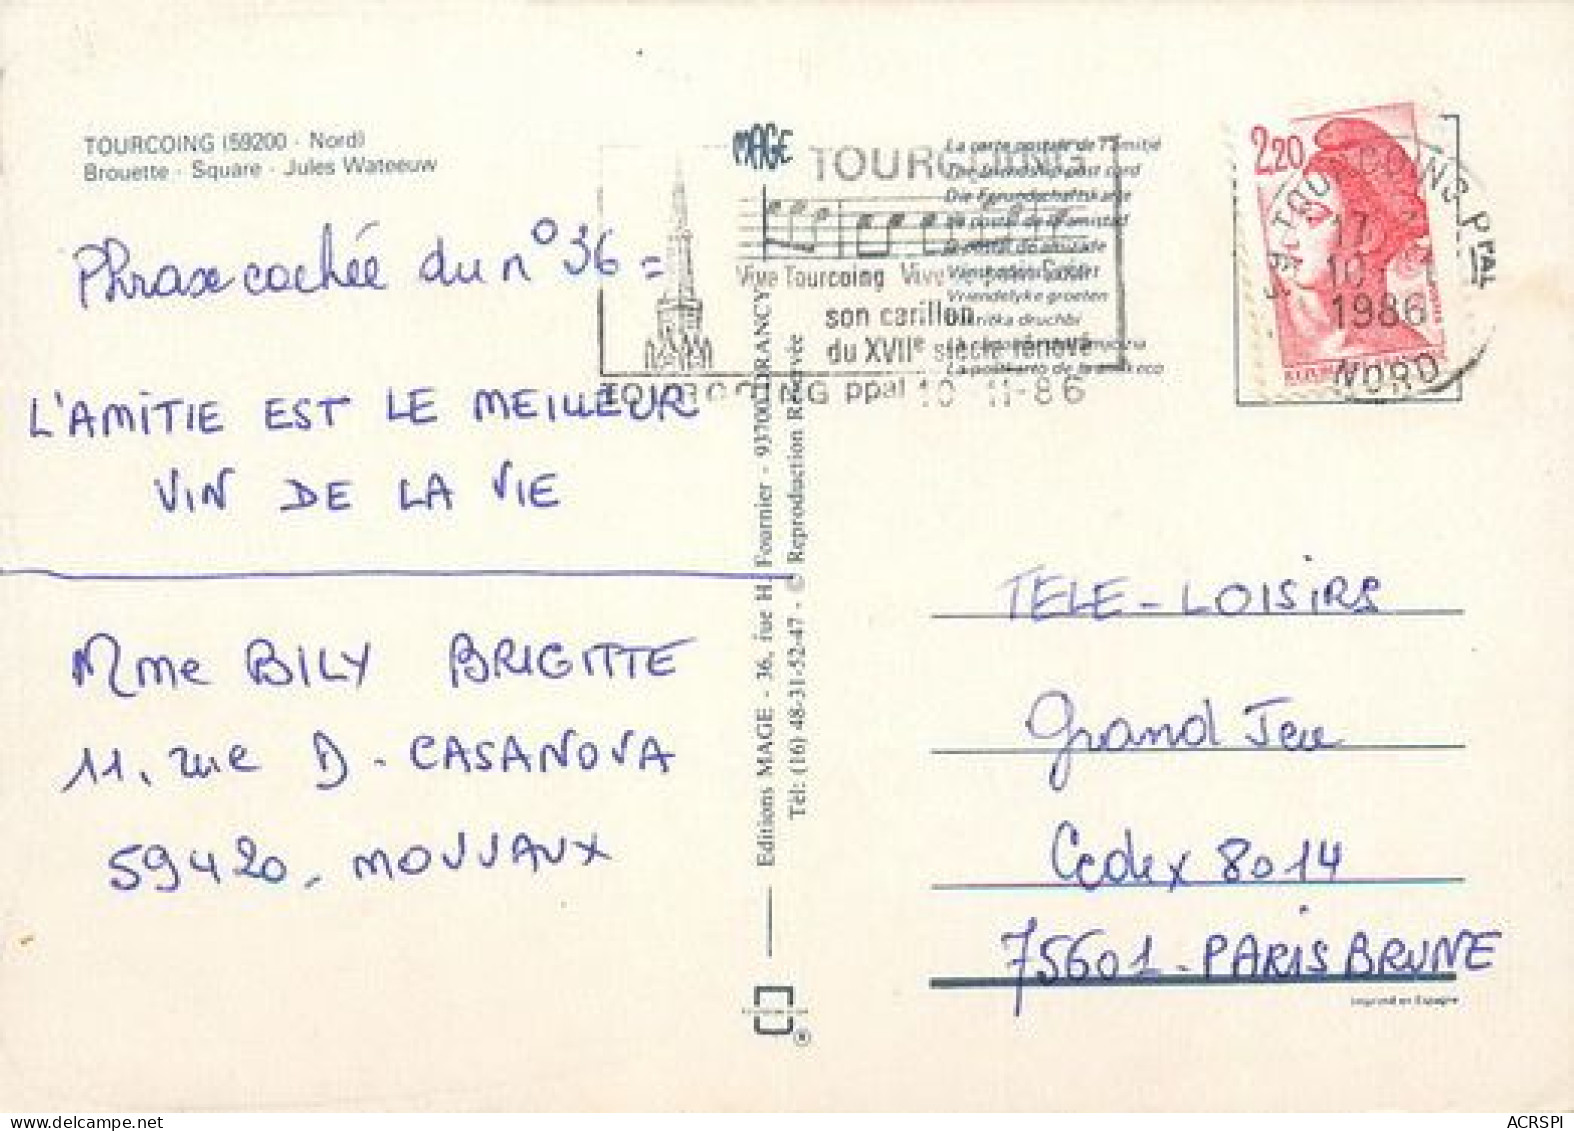 TOURCOING (59200 - Nord)
Brouette - Square - Jules Wateeuw
Phrase cachée du n° 36 =
L'AMITIE EST LE MEILLEUR
VIN DE LA VIE
Mme BILY BRIGITTE
11, rue D - CASANOVA
59420 - MOUVAUX
MAGE
Editions MAGE - 36, rue H. Fournier - 93700 DRANCY
Tél: (16) 48-31-52-47 - © Reproduction Réservée
TOURCOING
Vive Tourcoing Vive
son carillon
du XVIIe siècle rénové
TOURCOING ppal 10-11-86
La carte postale de l'amitié
The friendship post card
Die Freundschaftskarte
Vriendelyke groeten
2,20
59 TOURCOING PPAL
17
10-11
1986
NORD
TELE-LOISIRS
Grand Jeu
Cedex 8014
75601 - PARIS BRUNE
Imprimé en Espagne
ACRSPI